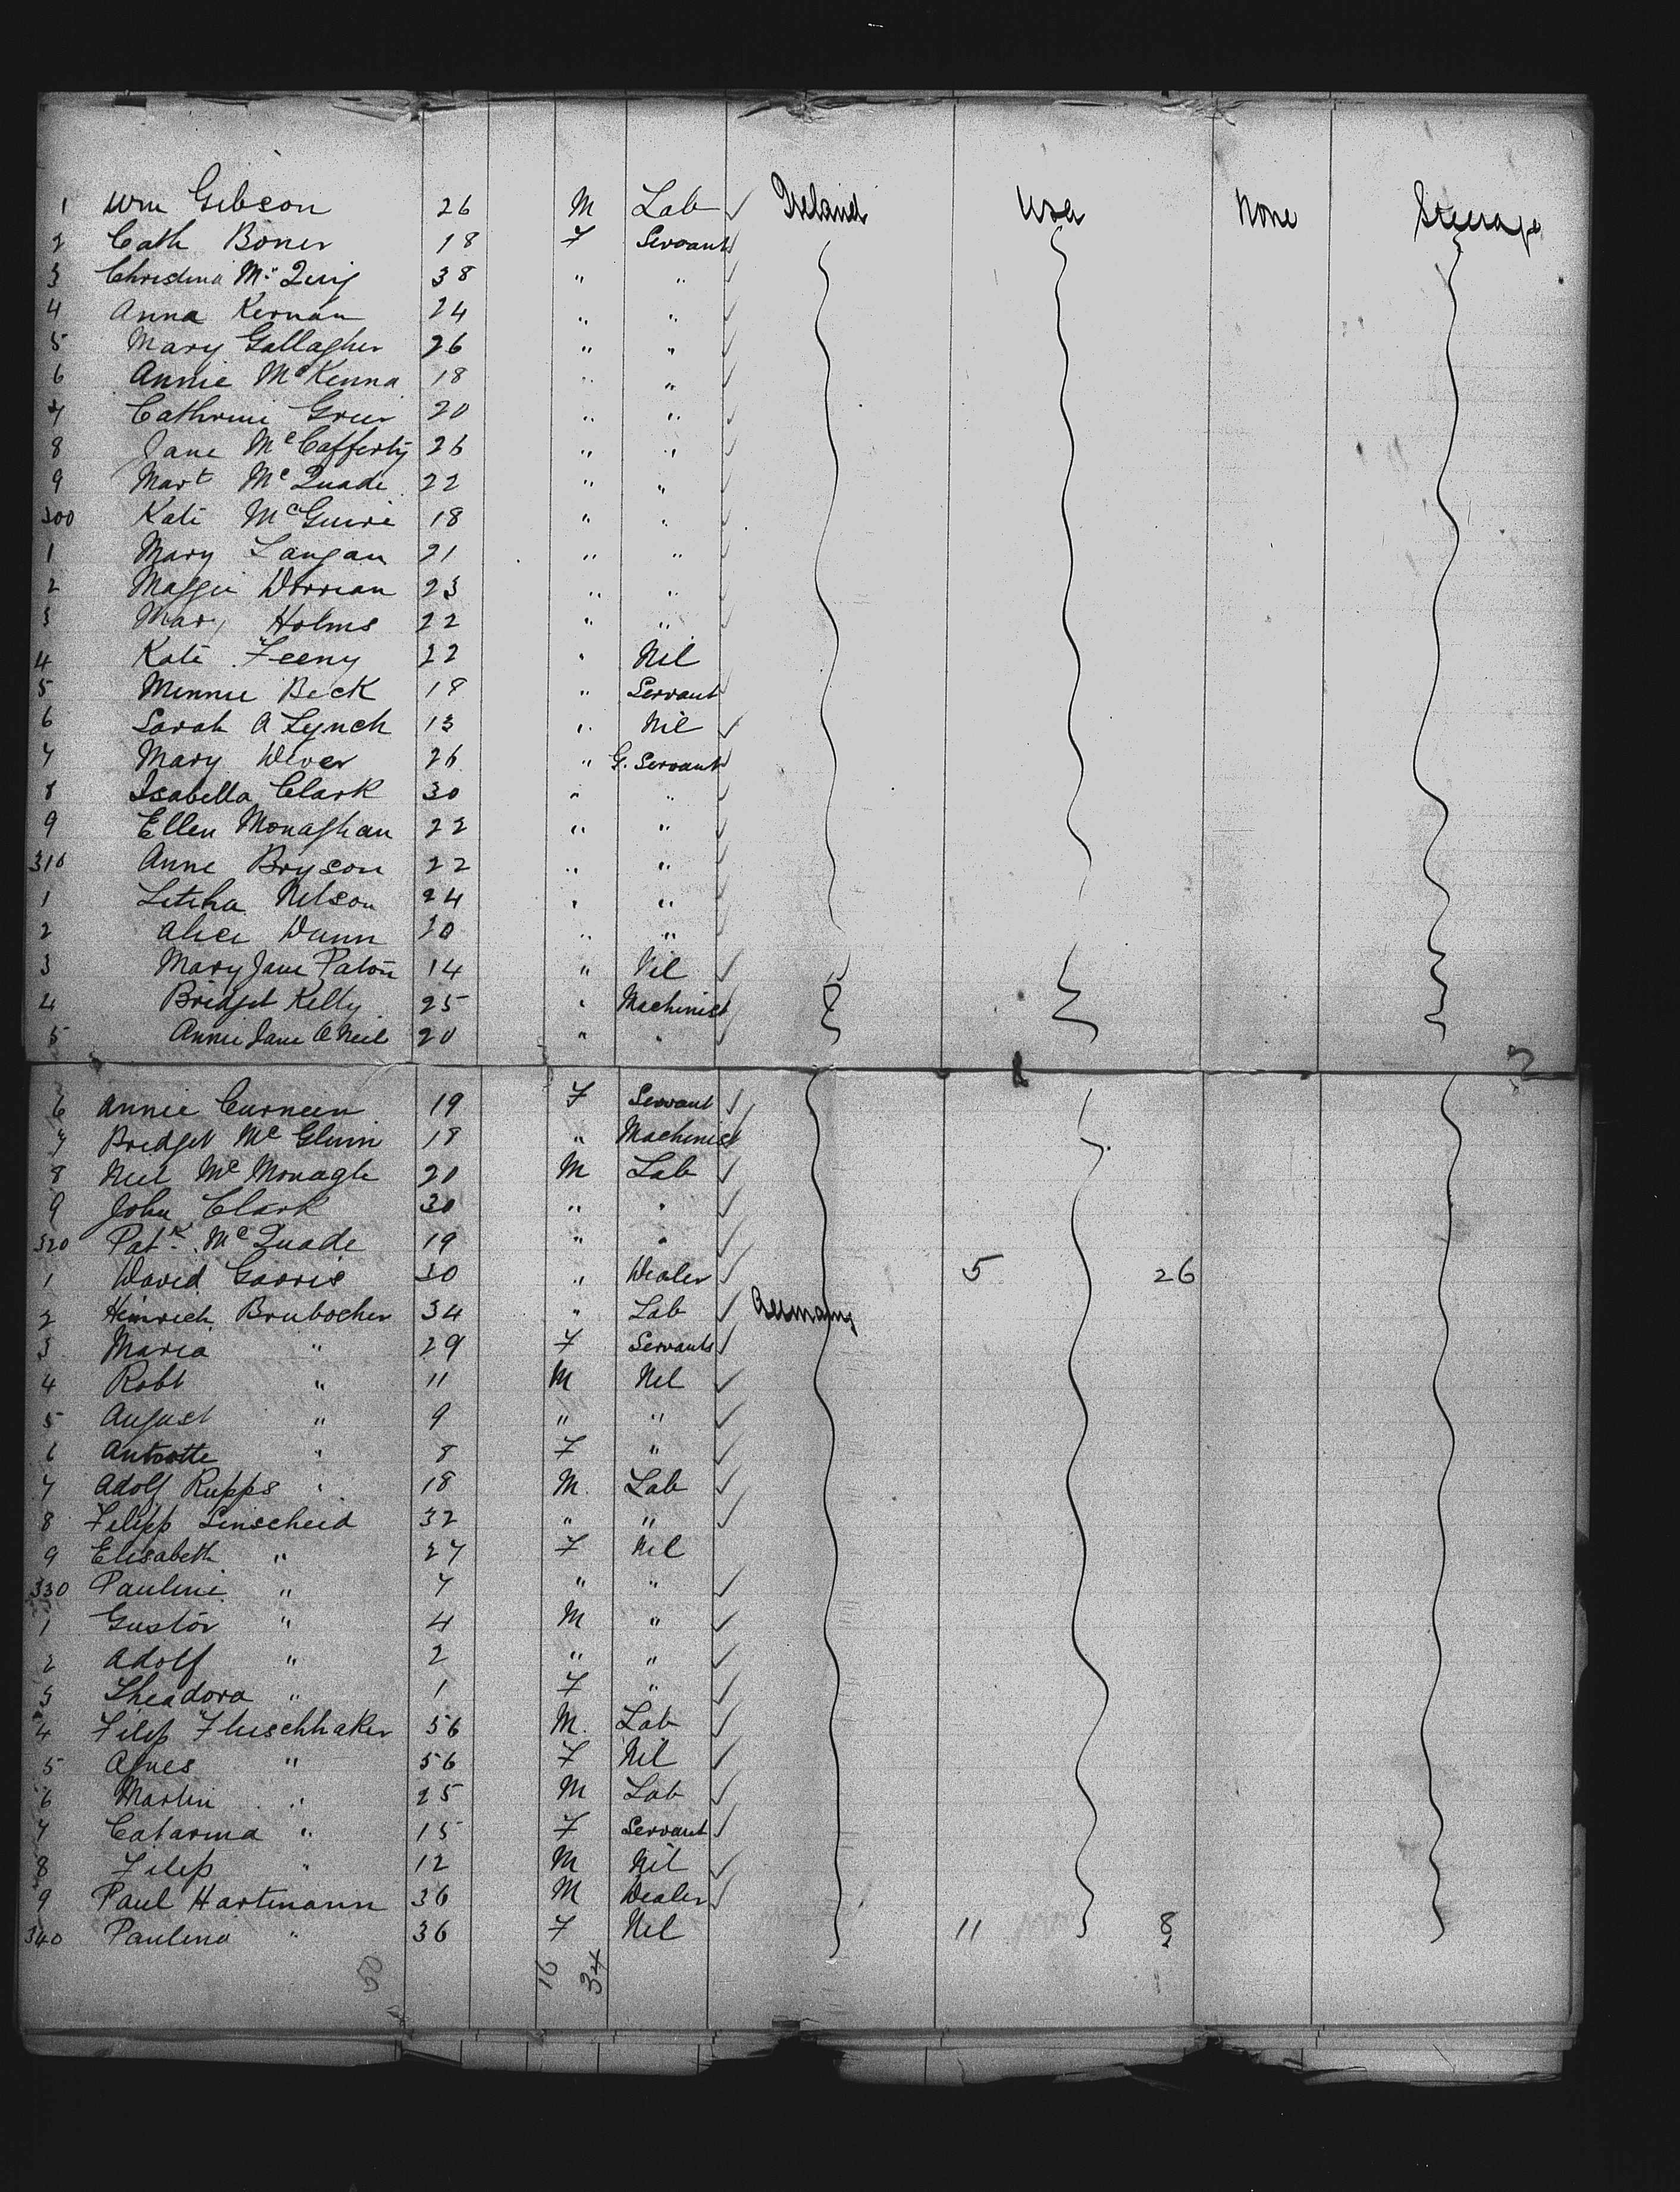 1 Wm Gibson 26 M Lab Ireland Usa None Steerage
2 Cath Boner 18 F Servant
3 Christina Mc Quig 38 " "
4 Anna Kernan 24 " "
5 Mary Gallagher 26 " "
6 Annie McKenna 18 " "
7 Cathrine Greer 20 " "
8 Jane McCafferty 26 " "
9 Mart McQuade 22 " "
300 Kate McGuire 18 " "
1 Mary Langan 21 " "
2 Maggie Dorrian 23 " "
3 Mary Holms 22 " "
4 Kate Feeny 22 " Nil
5 Minnie Beck 18 " Servant
6 Sarah A Lynch 13 " Nil
7 Mary Dever 26 " G. Servant
8 Isabella Clark 30 " "
9 Ellen Monaghan 22 " "
310 Anne Bryson 22 " "
1 Letitia Nelson 24 " "
2 Alice Dunn 20 " "
3 Mary Jane Paton 14 " Nil
4 Bridget Kelly 25 " Machinist
5 Annie Jane O Neil 20 " "
6 Annie Curneen 19 F Servant
7 Bridget Mc Glinn 18 " Machinist
8 Neil Mc Monagle 20 M Lab
9 John Clark 30 " "
320 Patk McQuade 19 " "
1 David Gorris 30 " Dealer 5 26
2 Heinrich Brubocher 34 " Lab Germany
3 Maria " 29 F Servants
4 Robt " 11 M Nil
5 August " 9 " "
6 " 8 F "
7 Adolf Rupps " 18 M. Lab
8 Filipp Linscheid 32 " "
9 Elisabeth " 27 F Nil
330 Pauline " 7 " "
1 Gustov " 4 M "
2 Adolf " 2 " "
3 Theadora " 1 F "
4 Filip Fluschhaker 56 M. Lab
5 Agnes " 56 F Nil
6 Martin " 25 M Lab
7 Catarina " 15 F Servant
8 Filip " 12 M Nil
9 Paul Hartmann 36 M Dealer
340 Paulina " 36 F Nil 11 8
16 34